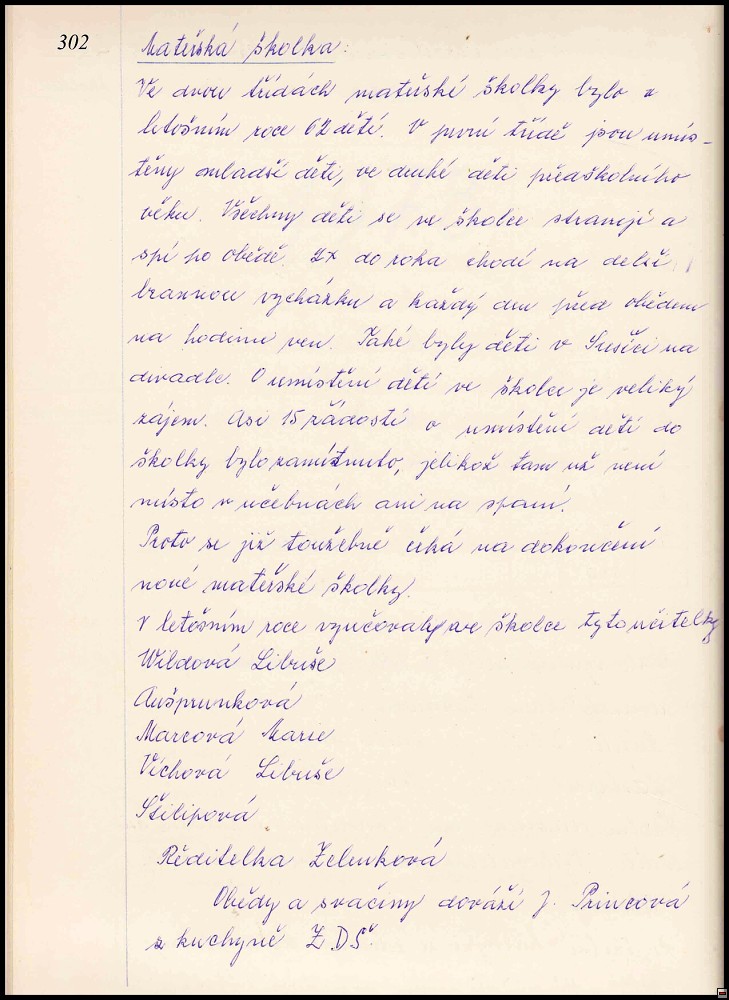 302
Mateřská školka:
Ve dvou třídách mateřské školky bylo v
letošním roce 62 dětí. V první třídě jsou umís-
těny mladší děti, ve druhé děti předškolního
věku. Všechny děti se ve školce stravují a
spí po obědě. 2x do roka chodí na delší
brannou vycházku a každý den před obědem
na hodinu ven. Také byly děti v Sušici na
divadle. O umístění dětí ve školce je veliký
zájem. Asi 15 žádostí o umístění dětí do
školky bylo zamítnuto, jelikož tam už není
místo v učebnách ani na spaní.
Proto se již toužebně čeká na dokončení
nové mateřské školky.
V letošním roce vyučovaly ve školce tyto učitelky
Wildová Libuše
Aušprunková
Marcová Marie
Víchová Libuše
Štilipová
Ředitelka Zelenková
Obědy a svačiny dováží J. Princová
z kuchyně ZDŠ.